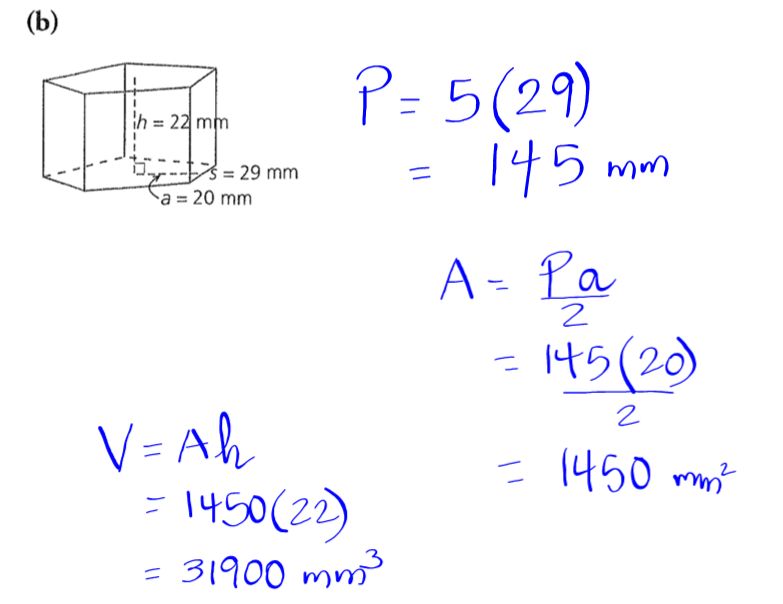 (b)
h = 22 mm
s = 29 mm
a = 20 mm
P = 5(29)
= 145 mm
A = Pa
2
= 145(20)
2
= 1450 mm²
V = Ah
= 1450(22)
= 31900 mm³